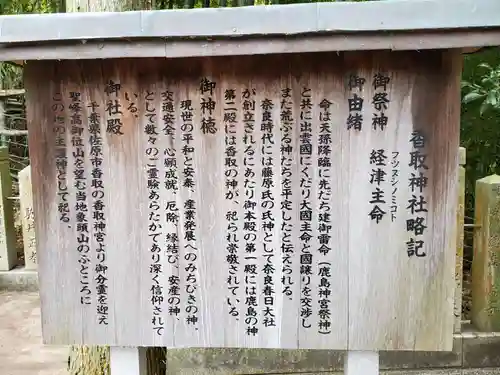 香取神社略記
御祭神 経津主命
フツヌシノミコト
御由緒
命は天孫降臨に先だち建御雷命（鹿島神宮祭神）
と共に出雲国にくだり大国主命と国譲りを交渉し
また荒ぶる神たちを平定したと伝えられる。
奈良時代には藤原氏の氏神として奈良春日大社
が創立されるにあたり御本殿の第一殿には鹿島の神
第二殿には香取の神が、祀られ崇敬されている。
御神徳
現世の平和と安泰、産業発展へのみちびきの神
交通安全、心願成就、厄除、縁結び、安産の神、
として数々のご霊験あらたかであり深く信仰されて
いる。
御社殿
千葉県佐原市香取の香取神宮より御分霊を迎え
聖峰高御位山を望む当地象頭山のふところに
この地の主護神として祀る。